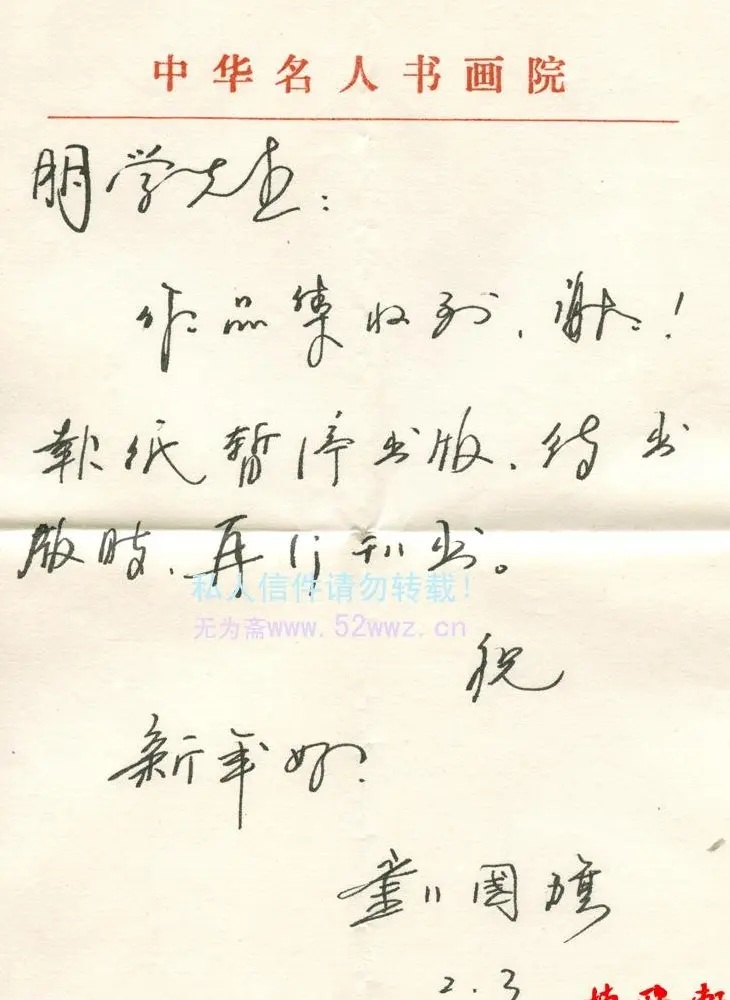 中华名人书画院
明学先生：
作品集收到，谢谢！
報纸暂停出版，待出
版时，再行刊出。
私人信件请勿转载！
无为斋www.52wwz.cn
祝
新年好！
劉國
2.3